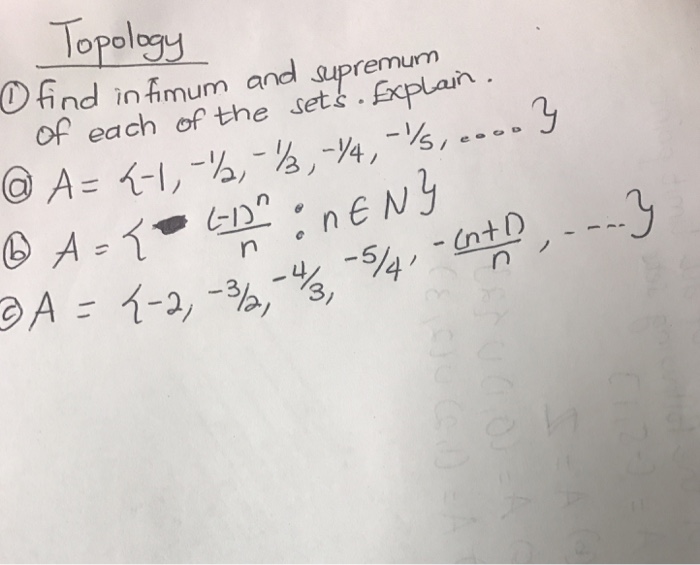 Topology
① find infimum and supremum
of each of the sets. Explain.
ⓐ A = {-1, -1/2, -1/3, -1/4, -1/5, .... }
ⓑ A = { (-1)^n / n : n ∈ N }
ⓒ A = {-2, -3/2, -4/3, -5/4, -(n+1)/n, ---- }